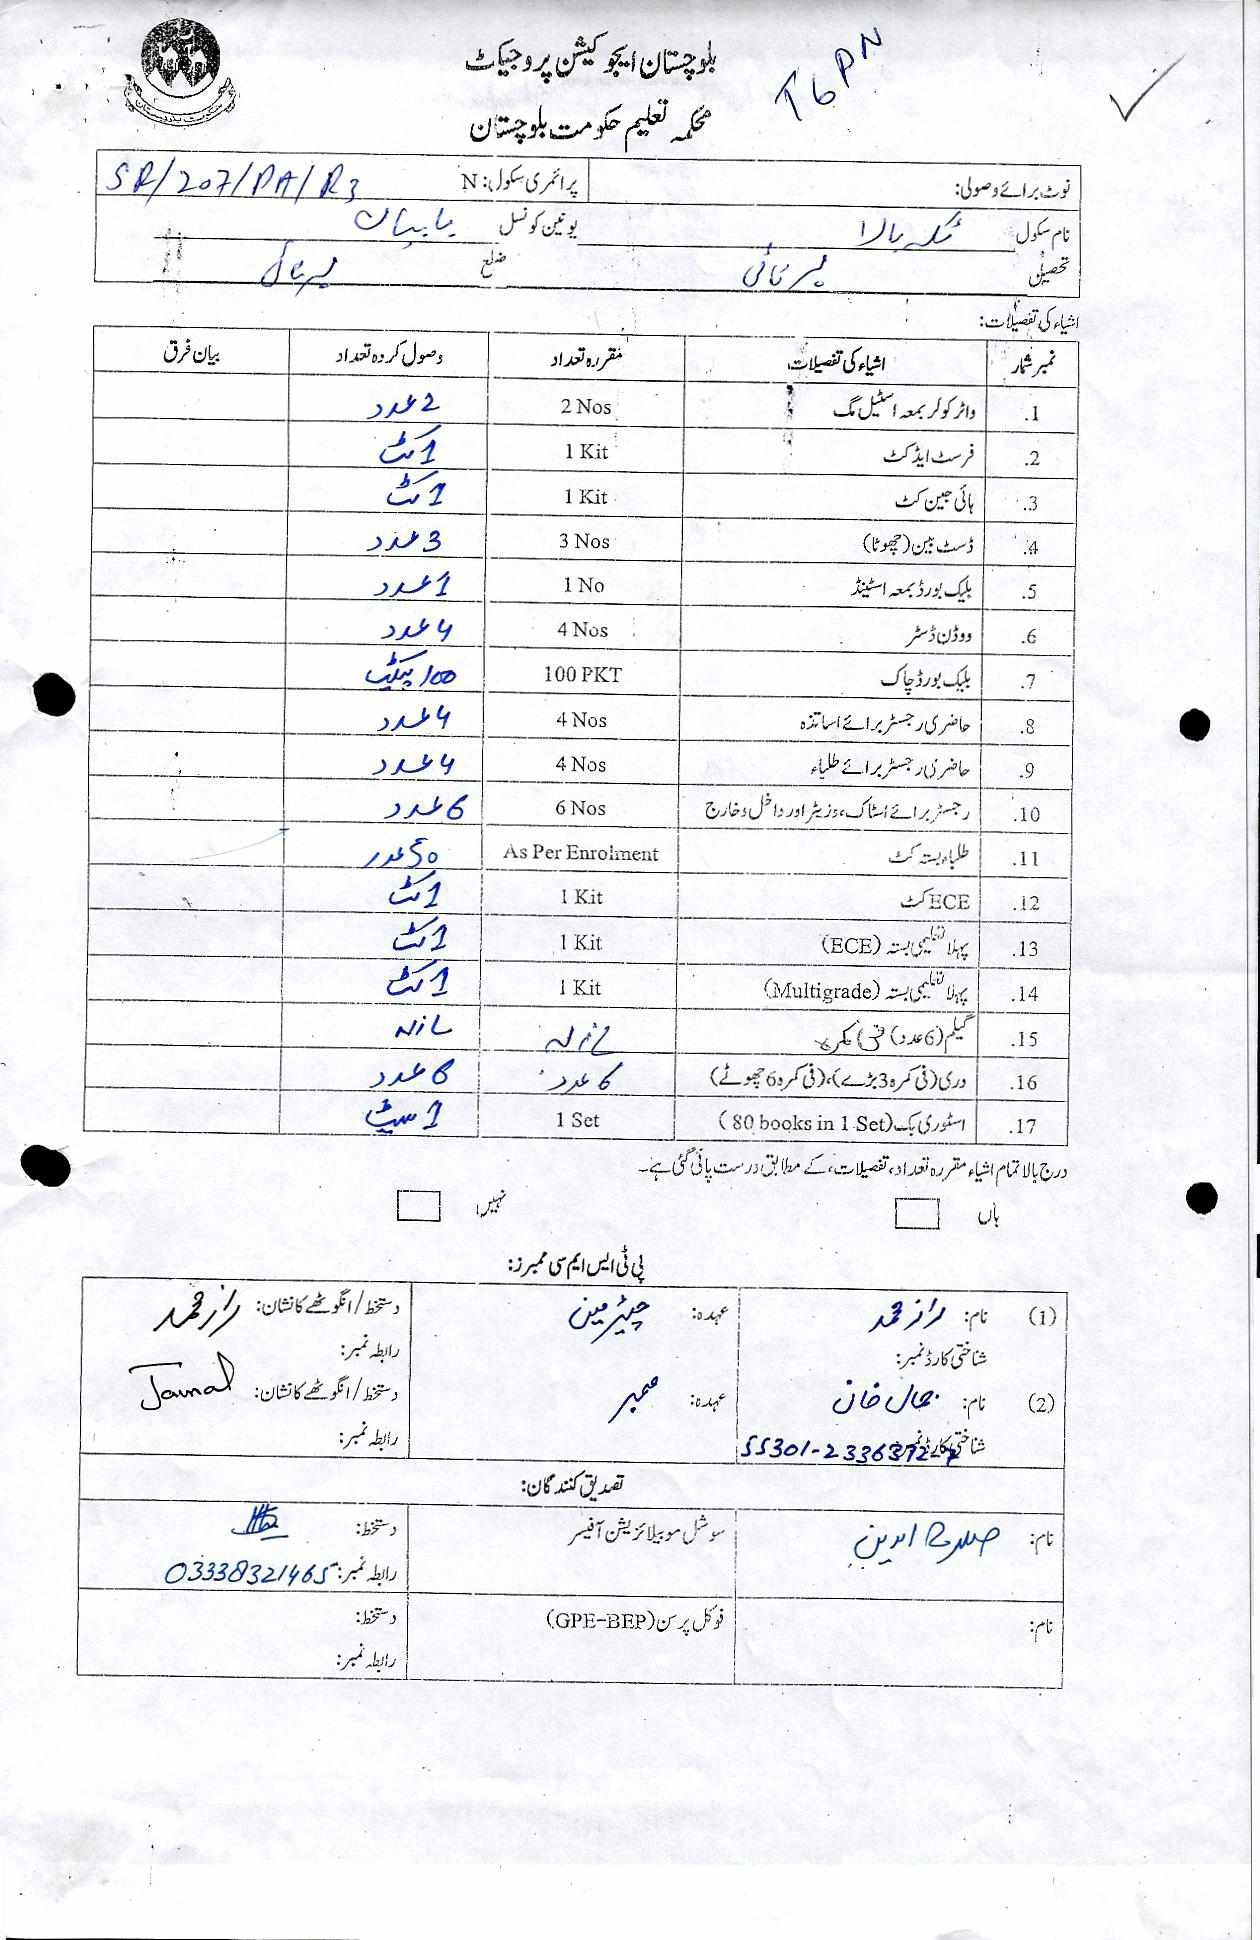 بلوچستان ایجوکیشن پروجیکٹ
T6PN
محکمہ تعلیم حکومت بلوچستان
نوٹ برائے وصولی: پرائمری سکول: N SR/207/PA/R3
نام سکول بالا یونین کونسل
تحصیل ضلع
اشیاء کی تفصیلات:
نمبر شمار اشیاء کی تفصیلات مقررہ تعداد وصول کردہ تعداد بیان فرق
1. واٹر کولر بمعہ اسٹیل مگ 2 Nos 2 عدد
2. فرسٹ ایڈ کٹ 1 Kit 1 کٹ
3. ہائی جین کٹ 1 Kit 1 کٹ
4. ڈسٹ بین (چھوٹا) 3 Nos 3 عدد
5. بلیک بورڈ بمعہ اسٹینڈ 1 No 1 عدد
6. ووڈن ڈسٹر 4 Nos 4 عدد
7. بلیک بورڈ چاک 100 PKT 100 پیکٹ
8. حاضری رجسٹر برائے اساتذہ 4 Nos 4 عدد
9. حاضری رجسٹر برائے طلباء 4 Nos 4 عدد
10. رجسٹر برائے اسٹاک، وزیٹر اور داخل و خارج 6 Nos 6 عدد
11. طلباء بستہ کٹ As Per Enrolment 50 عدد
12. ECE کٹ 1 Kit 1 کٹ
13. پہلا تعلیمی بستہ (ECE) 1 Kit 1 کٹ
14. پہلا تعلیمی بستہ (Multigrade) 1 Kit 1 کٹ
15. گیلم (6 عدد) فی کمرہ
16. دری (فی کمرہ 3 بڑے)، (فی کمرہ 6 چھوٹے) 6 عدد 6 عدد
17. اسٹوری بک (80 books in 1 Set) 1 Set 1 سیٹ
درج بالا تمام اشیاء مقررہ تعداد، تفصیلات، کے مطابق درست پائی گئی ہے۔
ہاں نہیں
پی ٹی ایس ایم سی ممبرز:
(1) نام: راز محمد عہدہ: چیئرمین دستخط/انگوٹھے کا نشان: راز محمد
شناختی کارڈ نمبر: رابطہ نمبر:
(2) نام: جمال خان عہدہ: ممبر دستخط/انگوٹھے کا نشان: Jamal
شناختی کارڈ نمبر: رابطہ نمبر:
تصدیق کنندگان:
نام: سوشل موبیلائزیشن آفیسر دستخط:
رابطہ نمبر: 03338321465
نام: فوکل پرسن (GPE-BEP) دستخط:
رابطہ نمبر: